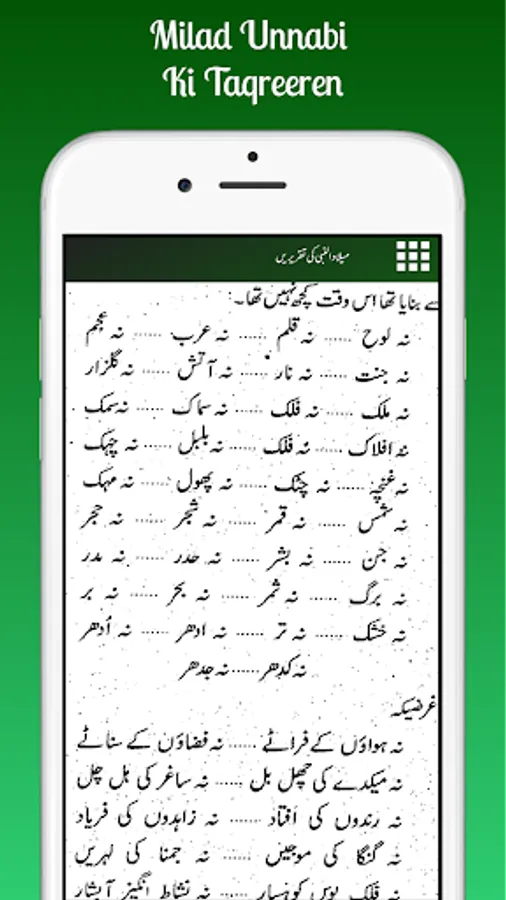 Milad Unnabi
Ki Taqreeren
میلاد النبی کی تقریریں
سے بنایا تھا اس وقت کچھ نہیں تھا۔
نہ لوح ...... نہ قلم ...... نہ عرب ...... نہ عجم
نہ جنت ...... نہ نار ...... نہ آتش ...... نہ گلزار
نہ ملک ...... نہ فلک ...... نہ سماک ...... نہ سمک
نہ افلاک ...... نہ فلک ...... نہ بلبل ...... نہ چہک
نہ غنچہ ...... نہ چٹک ...... نہ پھول ...... نہ مہک
نہ شمس ...... نہ قمر ...... نہ شجر ...... نہ حجر
نہ جن ...... نہ بشر ...... نہ حدر ...... نہ مدر
نہ برگ ...... نہ ثمر ...... نہ بحر ...... نہ بر
نہ خشک ...... نہ تر ...... نہ ادھر ...... نہ اُدھر
نہ کدھر ...... نہ جدھر
غرضیکہ
نہ ہواؤں کے فراٹے ...... نہ فضاؤں کے سناٹے
نہ میکدے کی چھل بل ...... نہ ساغر کی ہل چل
نہ رندوں کی اُفتاد ...... نہ زاہدوں کی فریاد
نہ گنگا کی موجیں ...... نہ جمنا کی لہریں
نہ فلک بوس کوہسار ...... نہ نشاط انگیز آبشار